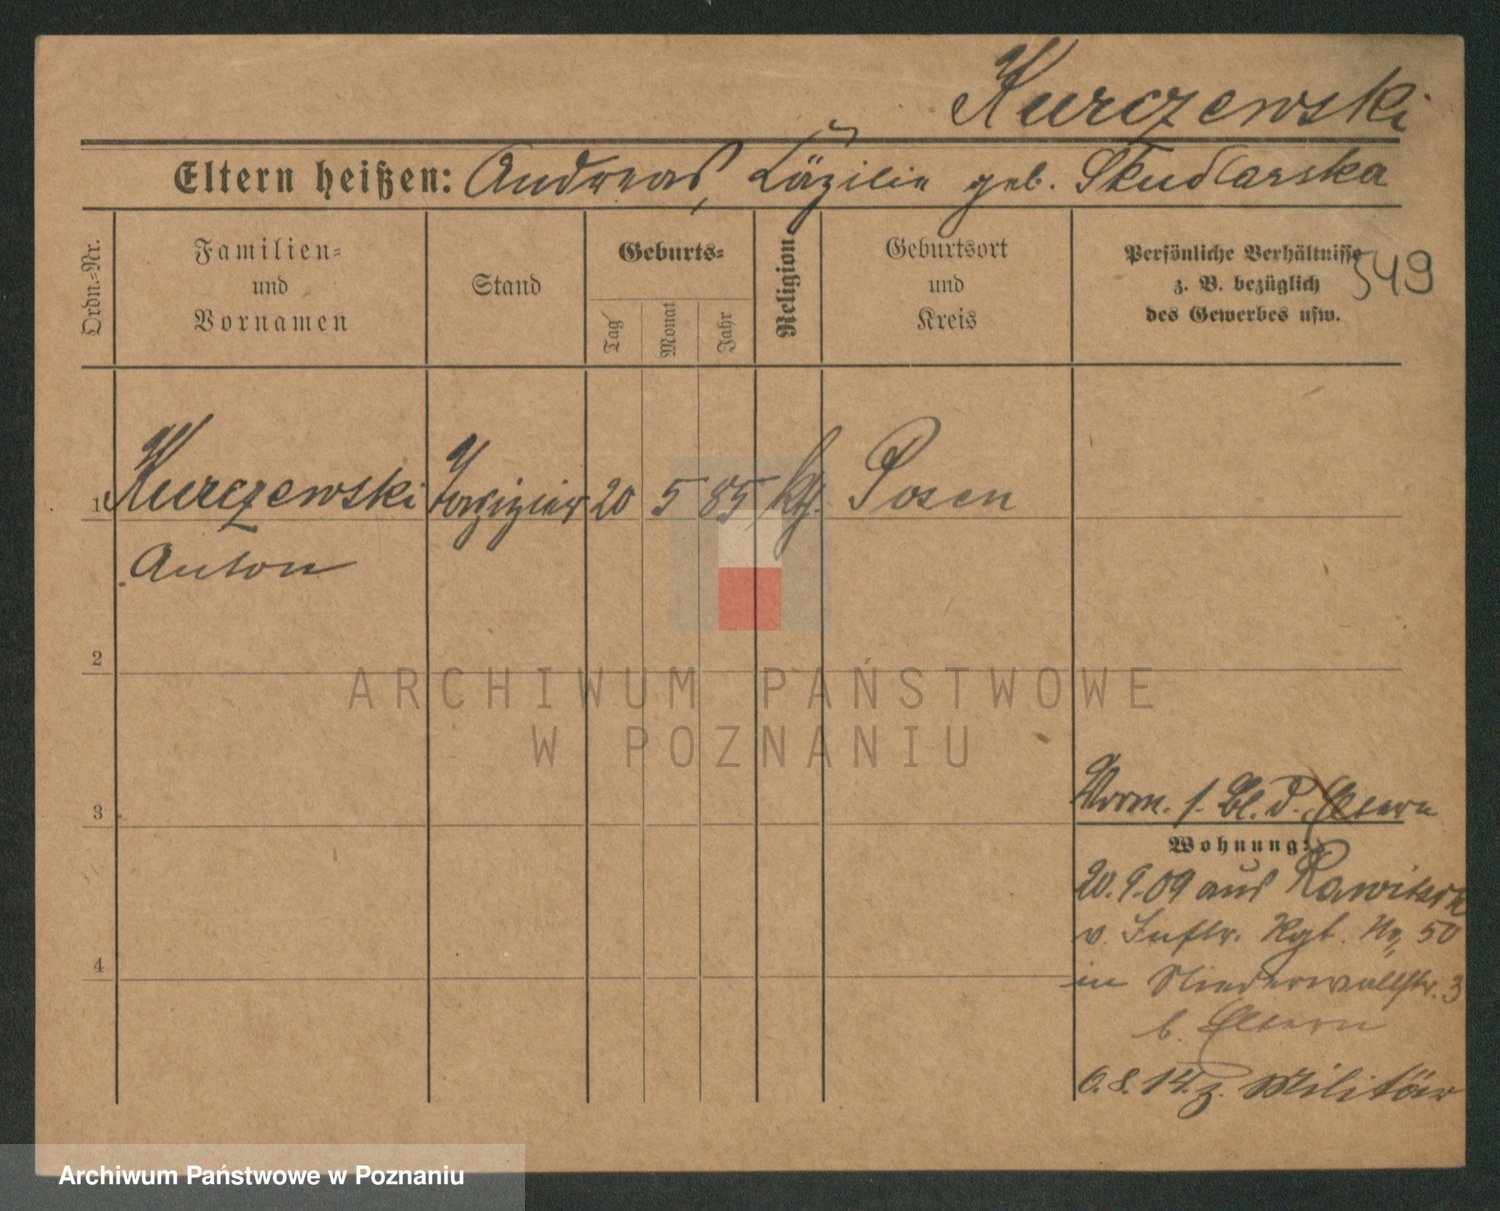 Kurczewski
Eltern heißen: Andreas, Cäzilie geb. Skudlarska
Ordn.-Nr.
Familien-
und
Vornamen
Stand
Geburts-
Tag
Monat
Jahr
Religion
Geburtsort
und
Kreis
Persönliche Verhältnisse
z. B. bezüglich
des Gewerbes usw.
549
1 Kurczewski 20 5 85 kth. Posen
Anton
2
3
4
Vorm. s. Bl. d. Eltern
Wohnung:
20.9.09 aus Rawitsch
v. Inftr. Rgt. No 50
in Niederwallstr. 3
b. Eltern
6.8.14 z. Militär
ARCHIWUM PAŃSTWOWE
W POZNANIU
Archiwum Państwowe w Poznaniu